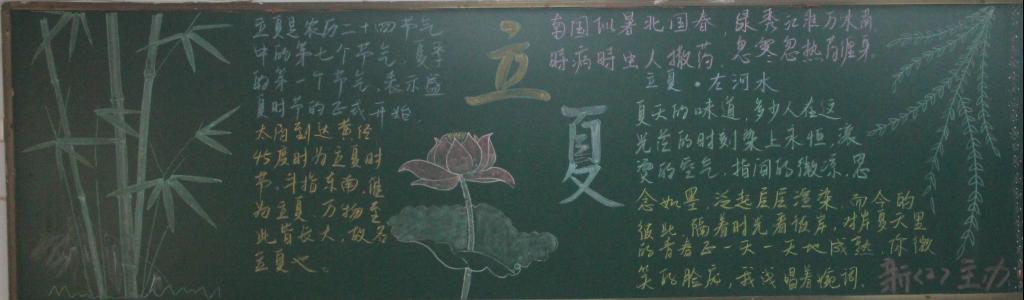 立夏是农历二十四节气
中的第七个节气，夏季
的第一个节气，表示盛
夏时节的正式开始.
太阳到达黄经
45度时为立夏时
节，斗指东南，维
为立夏，万物至
此皆长大，故名
立夏也。
立
夏
南国似暑北国春，绿秀江淮万木
时病时虫人撒药，忽寒忽热药
立夏·左河水
夏天的味道，多少人在这
光茫的时刻染上永恒，滚
烫的空气，指间的微凉，思
念如墨，泛起层层渲染，而今的
彼此，隔着时光看彼岸，对岸夏天里
的青春正一天一天地成熟，你微
笑的脸庞，我浅唱着婉词.
新(2)主办